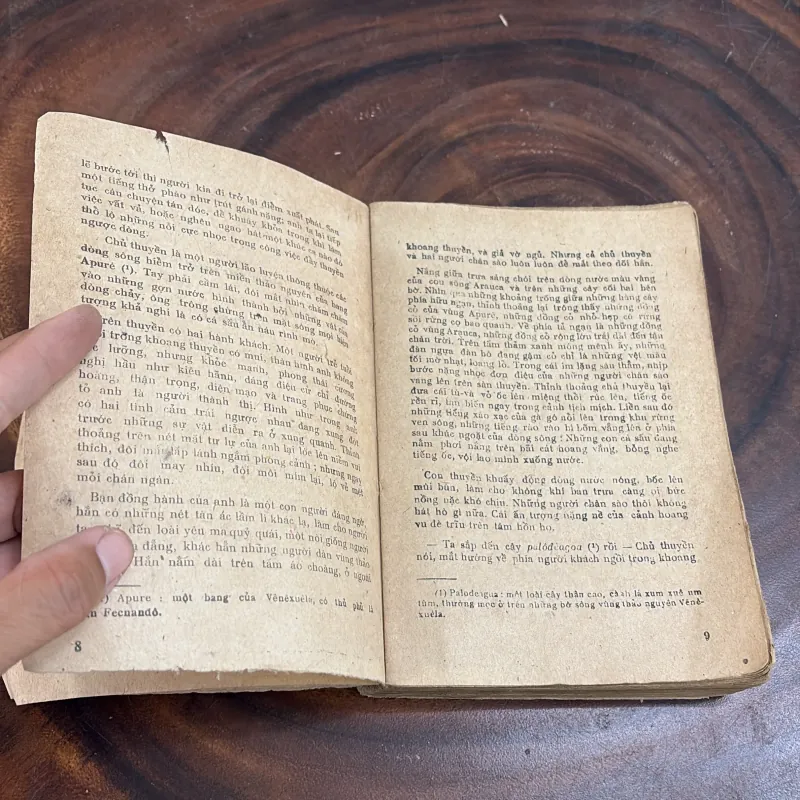 lẽ bước tới thì người kia đi trở lại điểm xuất phát. Sau
một tiếng thở phào như trút gánh nặng; anh ta lại tiếp
tục câu chuyện tán dóc, để khuây khỏa trong khi làm
việc vất vả, hoặc nghêu ngao hát một khúc ca nào đó
thổ lộ những nỗi cực nhọc trong công việc đẩy thuyền
ngược dòng.
Chủ thuyền là một người lão luyện thông thuộc các
dòng sông hiểm trở trên miền thảo nguyên của bang
Apurê (¹). Tay phải cầm lái, đôi mắt như chăm chăm
vào những gợn nước hình thành bởi những vật cản
dòng chảy, ông trông chừng trên mặt sông mọi hiện
tượng khả nghi là có cá sấu ẩn náu rình mò.
rên thuyền có hai hành khách. Một người trẻ tuổi
trong khoang thuyền có mui, thân hình anh không
lưỡng, nhưng khỏe mạnh, phong thái trông
nghị hầu như kiêu hãnh, dáng điệu cử chỉ đường
hoàng, thận trọng, diện mạo và trang phục chứng
tỏ anh là người thành thị. Hình như trong anh
có hai tình cảm trái ngược nhau đang xung đột
trước những sự vật diễn ra ở xung quanh. Thỉnh
thoảng trên nét mặt tự lự của anh lại lóe lên niềm vui
thích, đôi mắt lấp lánh ngắm phong cảnh; nhưng ngay
sau đó đôi mày nhíu, đôi môi mím lại, lộ vẻ mệt
mỏi chán ngán.
Bạn đồng hành của anh là một con người đáng ngờ,
hắn có những nét tàn ác lầm lì khác lạ, làm cho người
đến loài yêu ma quỷ quái, một nòi giống người
đẳng, khác hẳn những người dân vùng thảo
Hắn nằm dài trên tấm áo choàng, ở ngoài
) Apure : một bang của Vênêxuêla, có thủ phủ là
n Fecnanđô.
8
khoang thuyền, và giả vờ ngủ. Nhưng cả chủ thuyền
và hai người chân sào luôn luôn để mắt theo dõi hắn.
Nắng giữa trưa sáng chói trên dòng nước màu vàng
của con sông Arauca và trên những cây cối hai bên
bờ. Nhìn qua những khoảng trống giữa những hàng cây
phía hữu ngạn, thỉnh thoảng lại trông thấy những đồng
cỏ của vùng Apurê, những đồng cỏ nhỏ hẹp có rừng
sồi rừng cọ bao quanh. Về phía tả ngạn là những đồng
cỏ vùng Arauca, những đồng cỏ rộng lớn trải dài đến tận
chân trời. Trên tấm thảm xanh mông mênh ấy, những
đàn ngựa đàn bò đang gặm cỏ chỉ là những vệt màu
tối mờ nhạt, loang lổ. Trong cái im lặng sâu thẳm, nhịp
bước nặng nhọc đơn điệu của những người chân sào
vang lên trên sàn thuyền. Thỉnh thoảng chủ thuyền lại
đưa cái tù-và vỏ ốc lên miệng thổi rúc lên, tiếng ốc
rền rĩ, lịm biến ngay trong cảnh tịch mịch. Liền sau đó
những tiếng xôn xạc của gà gô nổi lên trong khu rừng
ven sông, những tiếng rào rào bì bõm vẳng lên ở phía
sau khúc ngoặt của dòng sông: Những con cá sấu đang
nằm phơi nắng trên bãi cát hoang vắng, bỗng nghe
tiếng ốc, vội lao mình xuống nước.
Con thuyền khuấy động dòng nước nóng, bốc lên
mùi bùn, làm cho không khí ban trưa càng oi bức
nồng nặc khó chịu. Những người chân sào thôi không
hát hò gì nữa. Cái ấn tượng nặng nề của cảnh hoang
vu đè trĩu trên tâm hồn họ.
— Ta sắp đến cây palôđêagoa (¹) rồi — Chủ thuyền
nói, mắt hướng về phía người khách ngồi trong khoang
(1) Palodeagua : một loài cây thân cao, cành lá xum xuê um
tùm, thường mọc ở trên những bờ sông vùng thảo nguyên Vênê-
xuêla.
9